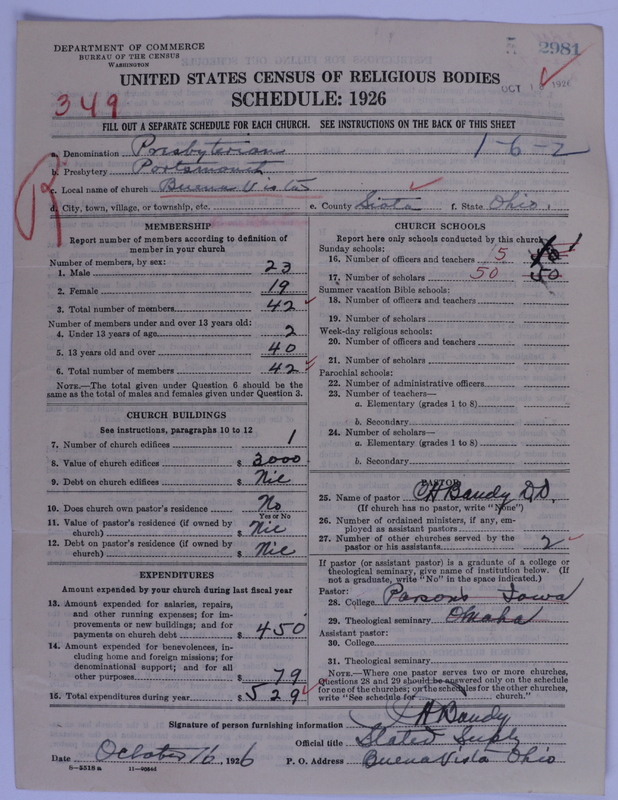 DEPARTMENT OF COMMERCE
BUREAU OF THE CENSUS
WASHINGTON
2981
UNITED STATES CENSUS OF RELIGIOUS BODIES
OCT 1926
349
SCHEDULE: 1926
FILL OUT A SEPARATE SCHEDULE FOR EACH CHURCH. SEE INSTRUCTIONS ON THE BACK OF THIS SHEET
a. Denomination Presbyterian 1-6-2
b. Presbytery Portsmouth
c. Local name of church Buena Vista
d. City, town, village, or township, etc. e. County Siota f. State Ohio.
MEMBERSHIP
Report number of members according to definition of
member in your church
Number of members, by sex:
1. Male 23
2. Female 19
3. Total number of members 42
Number of members under and over 13 years old:
4. Under 13 years of age 2
5. 13 years old and over 40
6. Total number of members 42
NOTE.—The total given under Question 6 should be the
same as the total of males and females given under Question 3.
CHURCH BUILDINGS
See instructions, paragraphs 10 to 12
7. Number of church edifices 1
8. Value of church edifices $ 3000
9. Debt on church edifices $ Nic
10. Does church own pastor's residence No
Yes or No
11. Value of pastor's residence (if owned by
church) $ Nic
12. Debt on pastor's residence (if owned by
church) $ Nic
EXPENDITURES
Amount expended by your church during last fiscal year
13. Amount expended for salaries, repairs,
and other running expenses; for im-
provements or new buildings; and for
payments on church debt $ 450
14. Amount expended for benevolences, in-
cluding home and foreign missions; for
denominational support; and for all
other purposes $ 79
15. Total expenditures during year $ 529
CHURCH SCHOOLS
Report here only schools conducted by this church
Sunday schools:
16. Number of officers and teachers 5
17. Number of scholars 50 50
Summer vacation Bible schools:
18. Number of officers and teachers
19. Number of scholars
Week-day religious schools:
20. Number of officers and teachers
21. Number of scholars
Parochial schools:
22. Number of administrative officers
23. Number of teachers—
a. Elementary (grades 1 to 8)
b. Secondary
24. Number of scholars—
a. Elementary (grades 1 to 8)
b. Secondary
PASTOR
25. Name of pastor CH Bandy DD.
(If church has no pastor, write "None")
26. Number of ordained ministers, if any, em-
ployed as assistant pastors
27. Number of other churches served by the
pastor or his assistants 2
If pastor (or assistant pastor) is a graduate of a college or
theological seminary, give name of institution below. (If
not a graduate, write "No" in the space indicated.)
Pastor:
28. College Parsons Iowa
29. Theological seminary Omaha
Assistant pastor:
30. College
31. Theological seminary
NOTE.—Where one pastor serves two or more churches,
Questions 28 and 29 should be answered only on the schedule
for one of the churches; on the schedules for the other churches,
write "See schedule for church."
Signature of person furnishing information CH Bandy
Official title Stated Suply
Date October 16, 1926 P. O. Address Buena Vista Ohio
8-5518 a